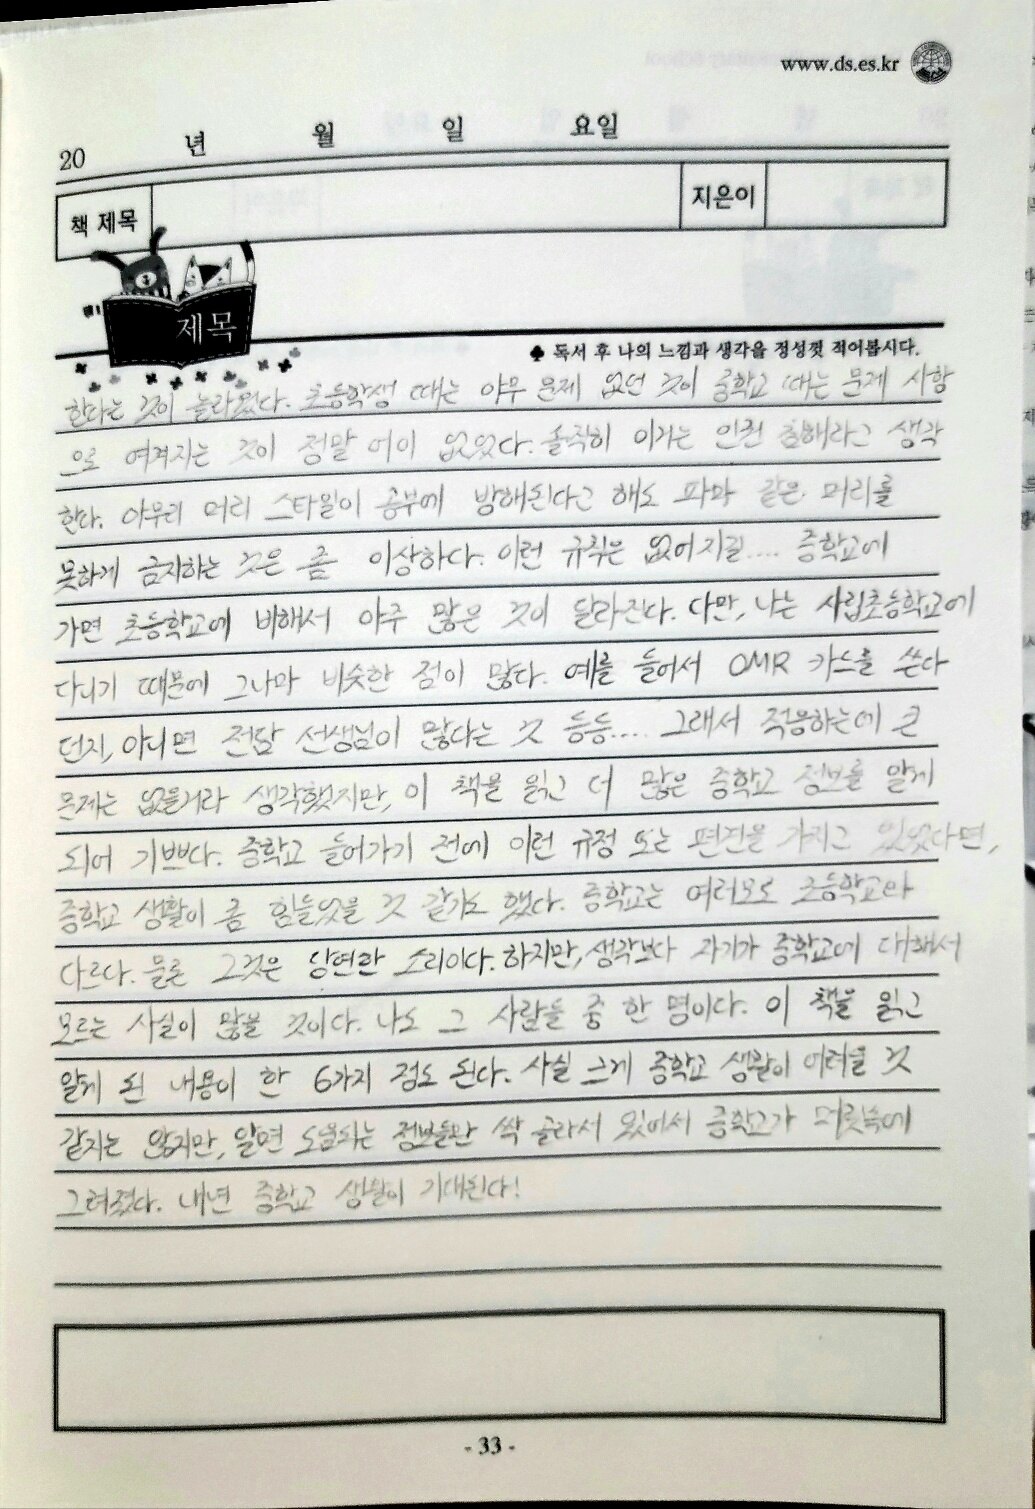 www.ds.es.kr
20 년 월 일 요일
책 제목 지은이
제목
♣ 독서 후 나의 느낌과 생각을 정성껏 적어봅시다.
한다는 것이 놀라웠다. 초등학생 때는 아무 문제 없던 것이 중학교 때는 문제 사항
으로 여겨지는 것이 정말 어이 없었다. 솔직히 이거는 인권 침해라고 생각
한다. 아무리 머리 스타일이 공부에 방해된다고 해도 파마 같은 머리를
못하게 금지하는 것은 좀 이상하다. 이런 규칙은 없어지길.... 중학교에
가면 초등학교에 비해서 아주 많은 것이 달라진다. 다만, 나는 사립초등학교에
다니기 때문에 그나마 비슷한 점이 많다. 예를 들어서 OMR 카드를 쓴다
던지, 아니면 전담 선생님이 많다는 것 등등.... 그래서 적응하는데 큰
문제는 없을거라 생각했지만, 이 책을 읽고 더 많은 중학교 정보를 알게
되어 기쁘다. 중학교 들어가기 전에 이런 규정 또는 편견을 가지고 있었다면,
중학교 생활이 좀 힘들었을 것 같기도 했다. 중학교는 여러모로 초등학교와
다르다. 물론 그것은 당연한 소리이다. 하지만, 생각보다 자기가 중학교에 대해서
모르는 사실이 많을 것이다. 나도 그 사람들 중 한 명이다. 이 책을 읽고
알게 된 내용이 한 6가지 정도 된다. 사실 크게 중학교 생활이 어려울 것
같지는 않지만, 알면 도움되는 정보들만 싹 골라서 있어서 중학교가 머릿속에
그려졌다. 내년 중학교 생활이 기대된다!
- 33 -